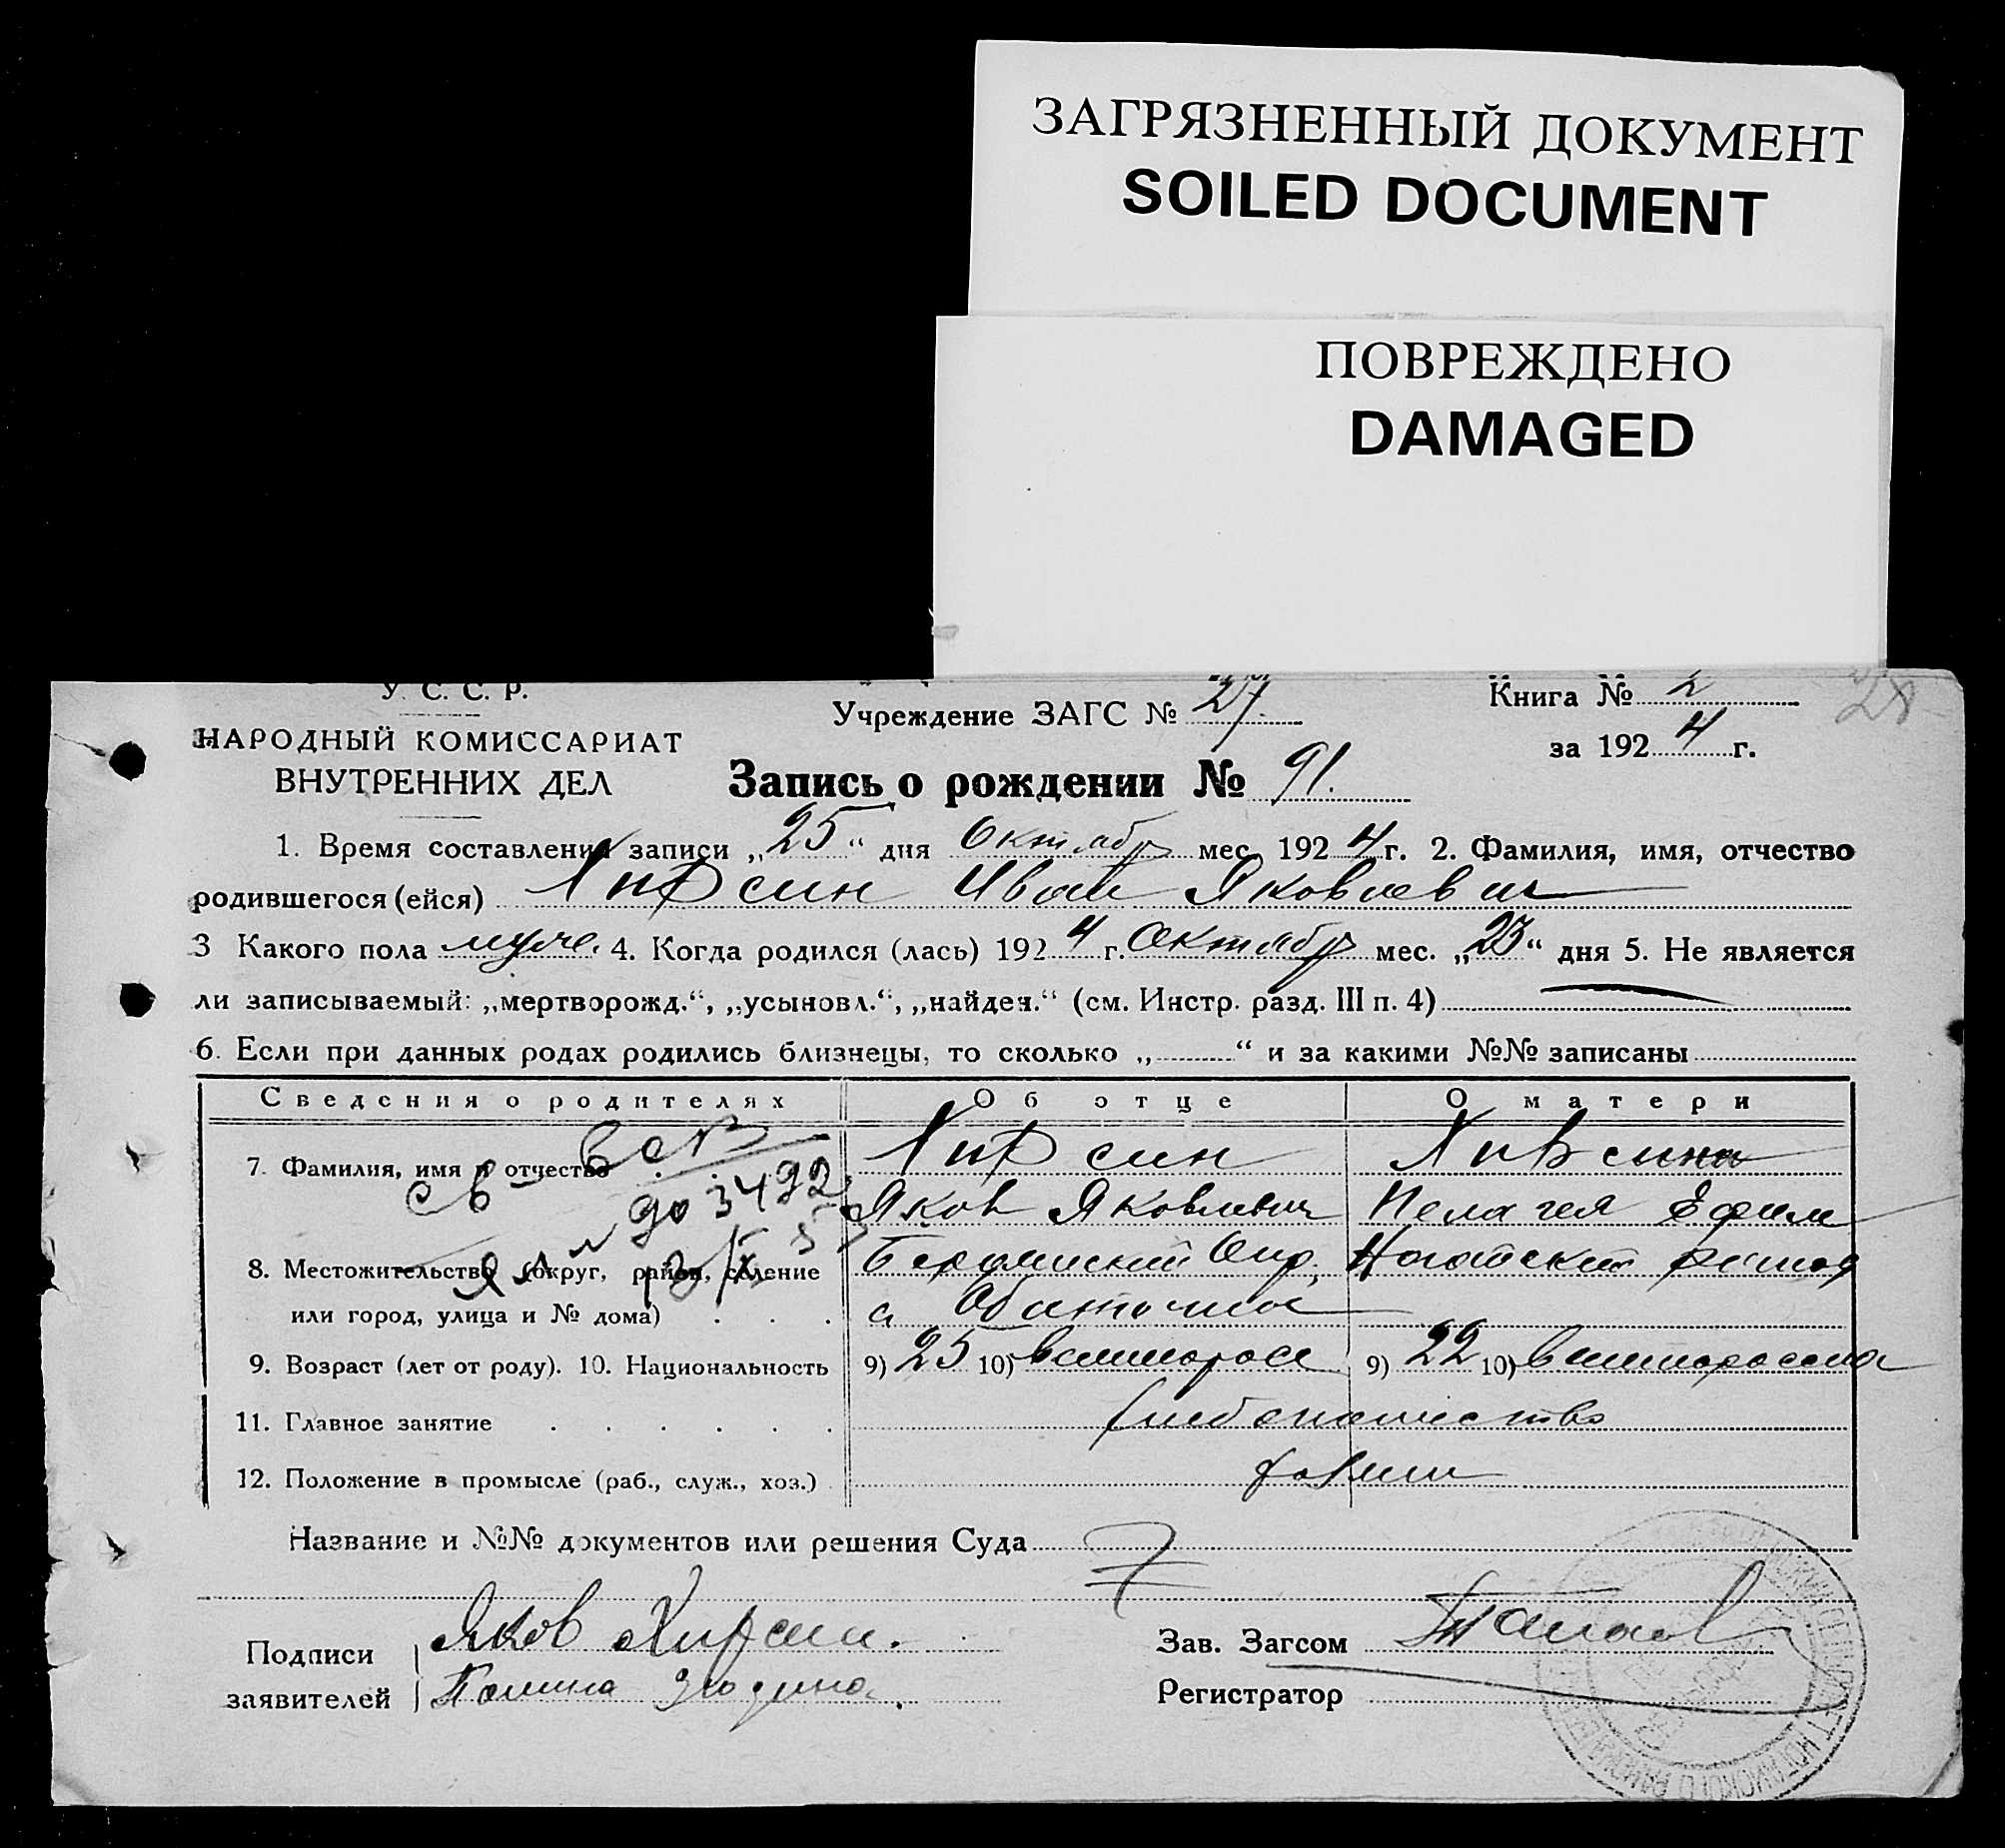 ЗАГРЯЗНЕННЫЙ ДОКУМЕНТ
SOILED DOCUMENT
ПОВРЕЖДЕНО
DAMAGED
У. С. С. Р.
НАРОДНЫЙ КОМИССАРИАТ
ВНУТРЕННИХ ДЕЛ
Учреждение ЗАГС № 27.
Книга № 2
28
за 1924 г.
Запись о рождении № 91.
1. Время составления записи „25“ дня Октябр мес. 1924 г. 2. Фамилия, имя, отчество
родившегося (ейся) Хирсин Иван Яковлевич
3 Какого пола муже. 4. Когда родился (лась) 1924 г. Октябр мес. „23“ дня 5. Не является
ли записываемый: „мертворожд.“, „усыновл.“, „найден.“ (см. Инстр. разд. III п. 4)
6. Если при данных родах родились близнецы, то сколько „ “ и за какими №№ записаны
Сведения о родителях Об отце О матери
7. Фамилия, имя и отчество Хирсин Хирсина
Яков Яковлевич Пелагея Ефим
8. Местожительство (округ, район, селение Ногайский район
или город, улица и № дома) . . . с Обиточное
9. Возраст (лет от роду). 10. Национальность 9) 25 10) великоросс 9) 22 10) великоросска
11. Главное занятие . . . . . . хлебопашество
12. Положение в промысле (раб., служ., хоз.)
Название и №№ документов или решения Суда
Подписи Яков Хирсин.
заявителей
Зав. Загсом
Регистратор